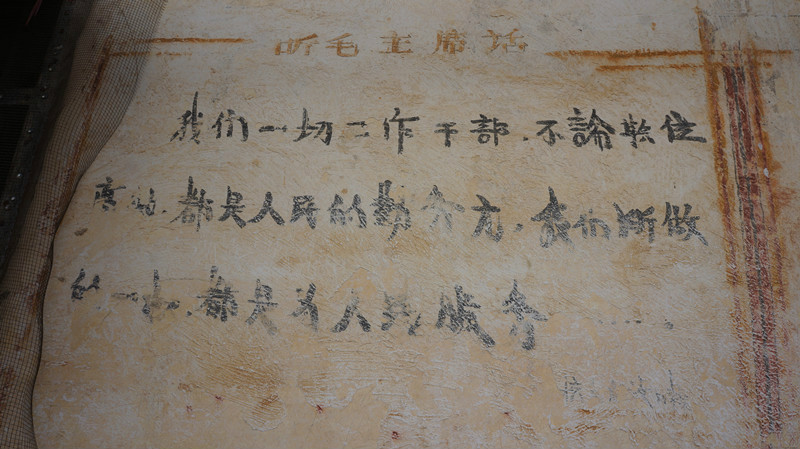 听毛主席话
我们一切工作干部,不論职位
高低,都是人民的勤务员,我们所做
的一切,都是为人民服务......